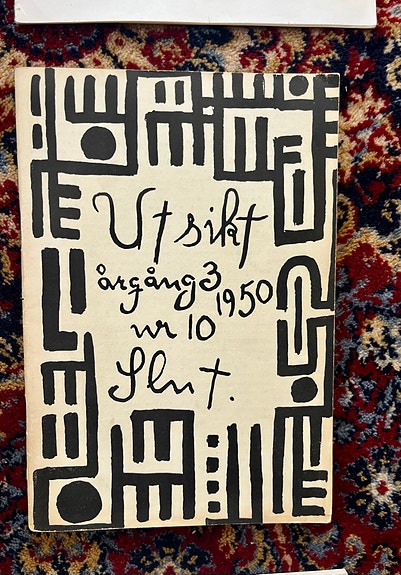 Utsikt
årgång 3
1950
nr 10
Slut.